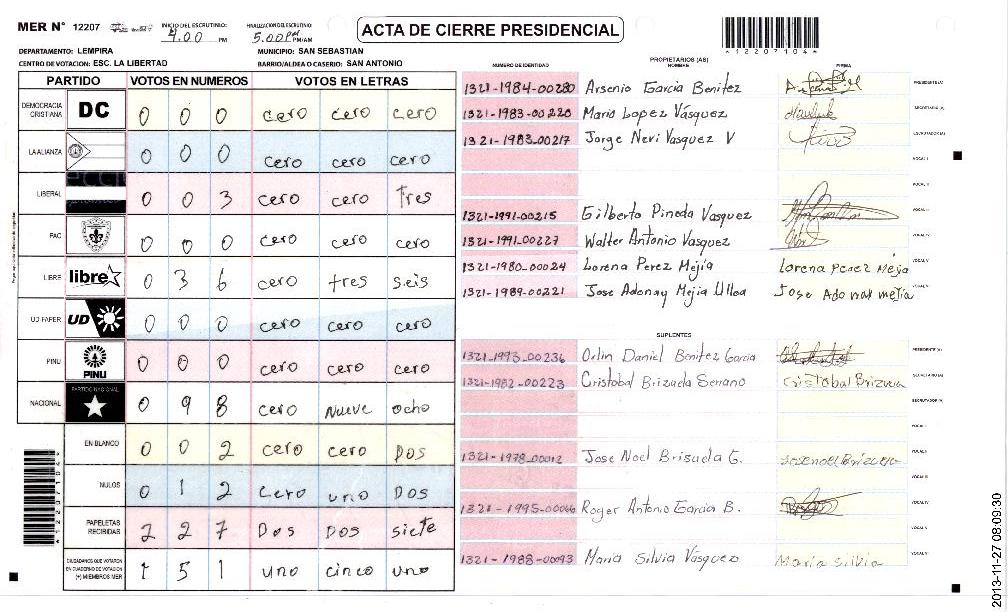 MER N° 12207
INICIO DEL ESCRUTINIO: 4.00 PM
FINALIZACION DEL ESCRUTINIO: 5.00 PM PM/AM
ACTA DE CIERRE PRESIDENCIAL
*12207104*
DEPARTAMENTO: LEMPIRA
MUNICIPIO: SAN SEBASTIAN
CENTRO DE VOTACION: ESC. LA LIBERTAD
BARRIO/ALDEA O CASERIO: SAN ANTONIO
PARTIDO VOTOS EN NUMEROS VOTOS EN LETRAS
DEMOCRACIA CRISTIANA DC 0 0 0 cero cero cero
LA ALIANZA 0 0 0 cero cero cero
LIBERAL 0 0 3 cero cero tres
PAC 0 0 0 cero cero cero
LIBRE libre 0 3 6 cero tres seis
UD FAPER UD 0 0 0 cero cero cero
PINU PINU 0 0 0 cero cero cero
NACIONAL PARTIDO NACIONAL 0 9 8 cero Nueve ocho
EN BLANCO 0 0 2 cero cero Dos
NULOS 0 1 2 cero uno Dos
PAPELETAS RECIBIDAS 2 2 7 Dos Dos siete
CIUDADANOS QUE VOTARON EN CUADERNO DE VOTACION (+) MIEMBROS MER 1 5 1 uno cinco uno
PROPIETARIOS (AS)
NUMERO DE IDENTIDAD NOMBRE FIRMA
1321-1984-00280 Arsenio Garcia Benitez PRESIDENTE (A)
1321-1983-00220 Mario Lopez Vásquez SECRETARIO (A)
1321-1983-00217 Jorge Neri Vasquez V ESCRUTADOR (A)
VOCAL I
VOCAL II
1321-1991-00215 Gilberto Pineda Vasquez VOCAL III
1321-1991-00227 Walter Antonio Vasquez VOCAL IV
1321-1980-00024 Lorena Perez Mejía Lorena Perez Mejia VOCAL V
1321-1989-00221 Jose Adonay Mejia Ulloa Jose Adonay mejia
SUPLENTES
1321-1993-00236 Orlin Daniel Benitez Garcia PRESIDENTE (A)
1321-1982-00223 Cristobal Brizuela Serrano Cristobal Brizuela SECRETARIO (A)
ESCRUTADOR (A)
VOCAL I
1321-1978-00012 Jose Noel Brisuela G. Jose noel Brizuela VOCAL II
VOCAL III
1321-1995-00066 Roger Antonio Garcia B. VOCAL IV
VOCAL V
1321-1988-00093 Maria Silvia Vásquez Maria silvia VOCAL VI
*12207104*
2013-11-27 08:09:30